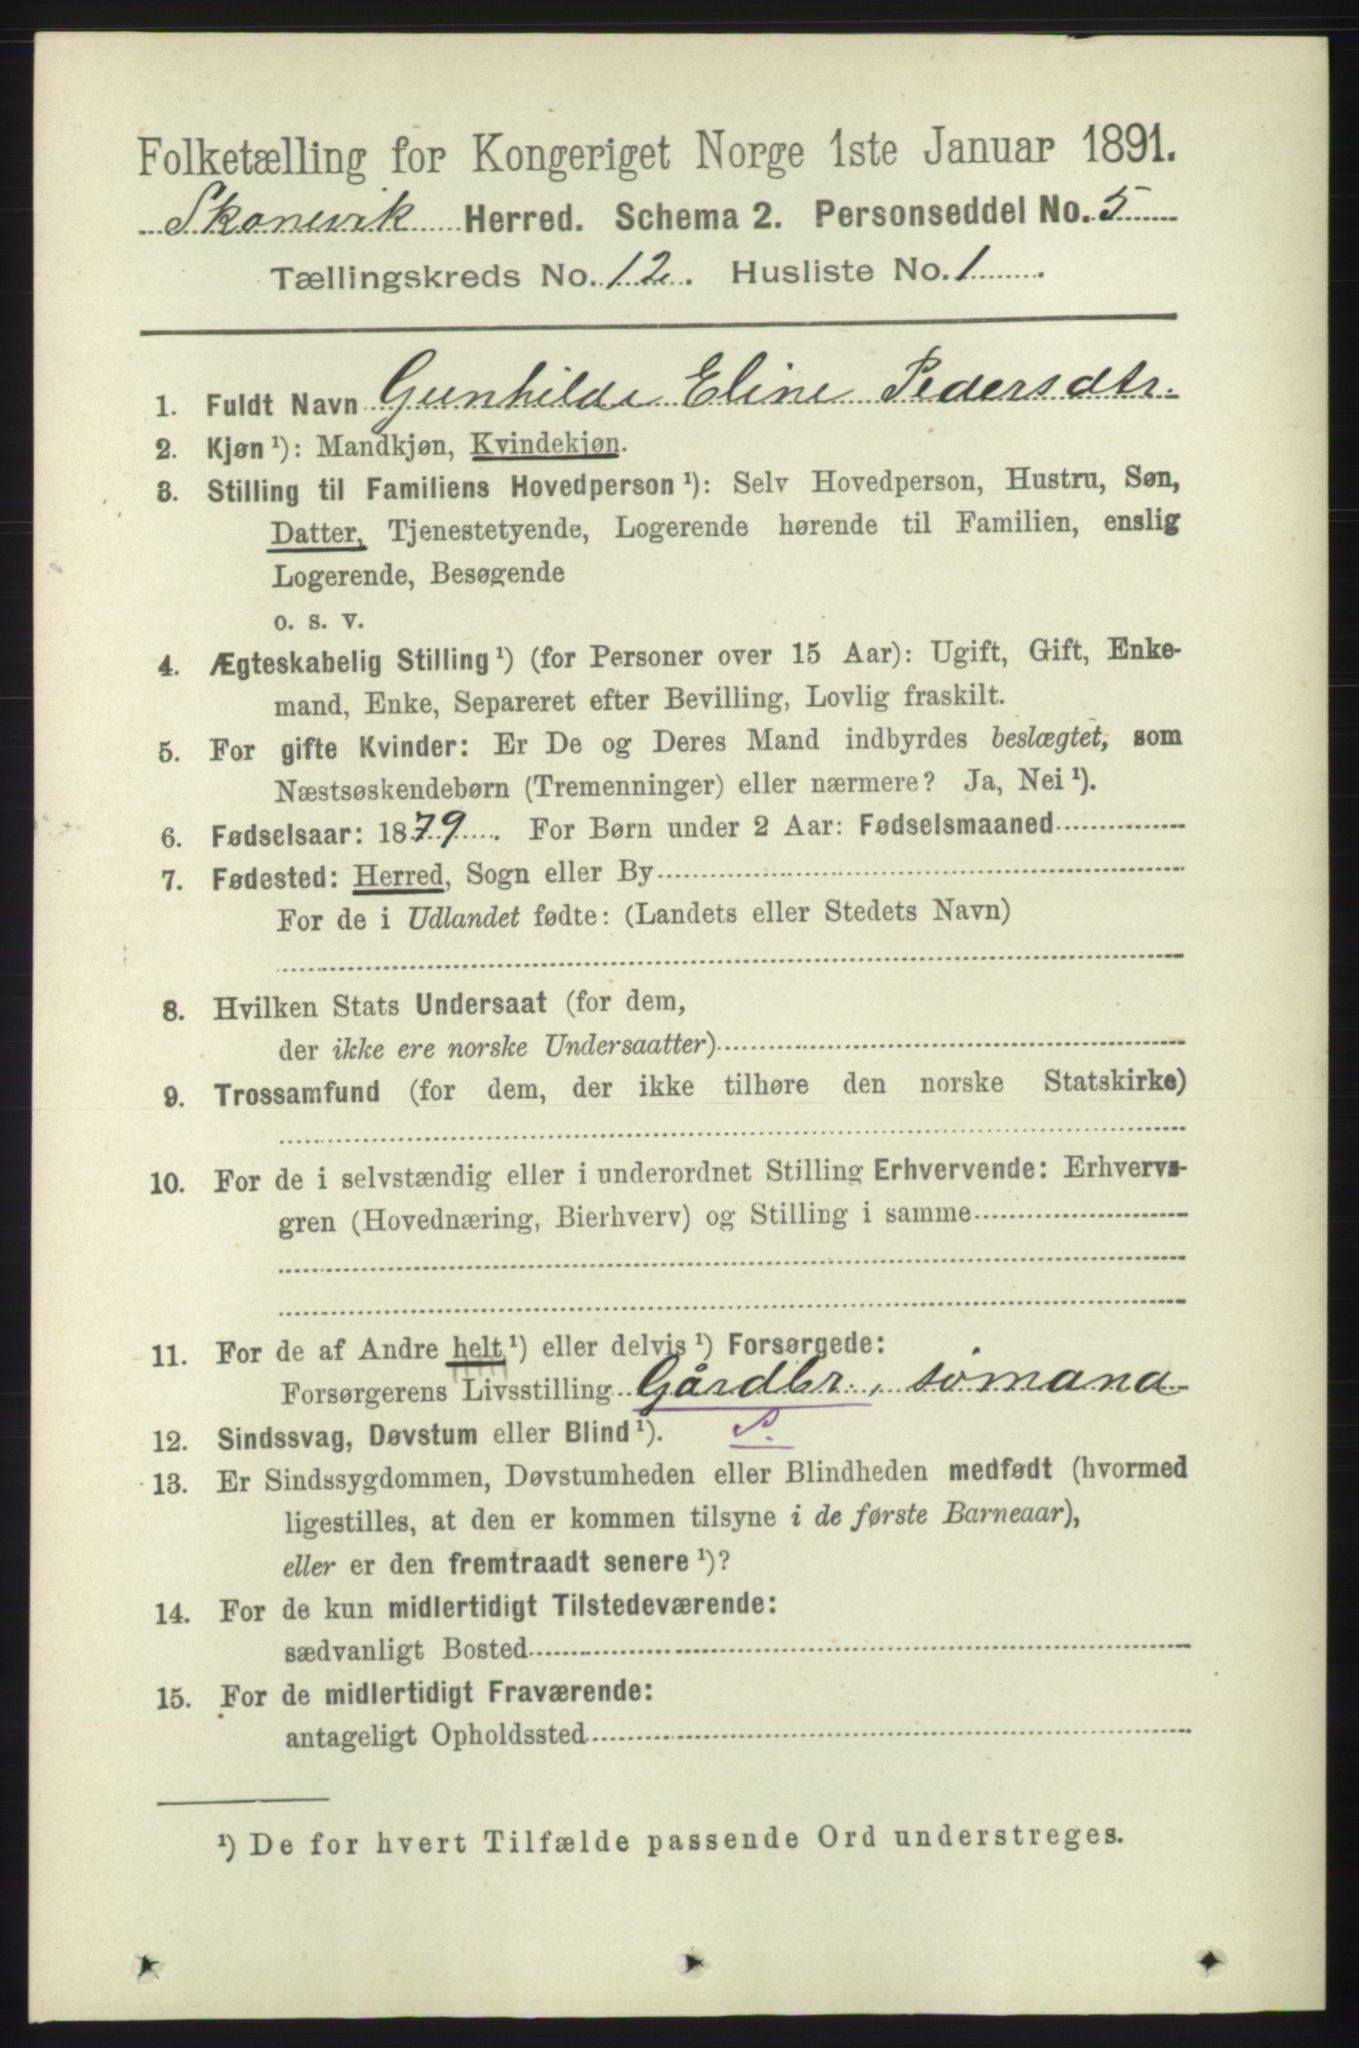 Folketælling for Kongeriget Norge 1ste Januar 1891.
Skonevik Herred. Schema 2. Personseddel No. 5
Tællingskreds No. 12. Husliste No. 1.
1. Fuldt Navn Gunhilde Eline Pedersdtr.
2. Kjøn ¹): Mandkjøn, Kvindekjøn.
3. Stilling til Familiens Hovedperson ¹): Selv Hovedperson, Hustru, Søn,
Datter, Tjenestetyende, Logerende hørende til Familien, enslig
Logerende, Besøgende
o. s. v.
4. Ægteskabelig Stilling ¹) (for Personer over 15 Aar): Ugift, Gift, Enke-
mand, Enke, Separeret efter Bevilling, Lovlig fraskilt.
5. For gifte Kvinder: Er De og Deres Mand indbyrdes beslægtet, som
Næstsøskendebørn (Tremenninger) eller nærmere? Ja, Nei ¹).
6. Fødselsaar: 1879. For Børn under 2 Aar: Fødselsmaaned
7. Fødested: Herred, Sogn eller By
For de i Udlandet fødte: (Landets eller Stedets Navn)
8. Hvilken Stats Undersaat (for dem,
der ikke ere norske Undersaatter)
9. Trossamfund (for dem, der ikke tilhøre den norske Statskirke)
10. For de i selvstændig eller i underordnet Stilling Erhvervende: Erhvervs-
gren (Hovednæring, Bierhverv) og Stilling i samme
11. For de af Andre helt ¹) eller delvis ¹) Forsørgede:
Forsørgerens Livsstilling Gårdbr., sömand
12. Sindssvag, Døvstum eller Blind ¹). S.
13. Er Sindssygdommen, Døvstumheden eller Blindheden medfødt (hvormed
ligestilles, at den er kommen tilsyne i de første Barneaar),
eller er den fremtraadt senere ¹)?
14. For de kun midlertidigt Tilstedeværende:
sædvanligt Bosted
15. For de midlertidigt Fraværende:
antageligt Opholdssted
¹) De for hvert Tilfælde passende Ord understreges.